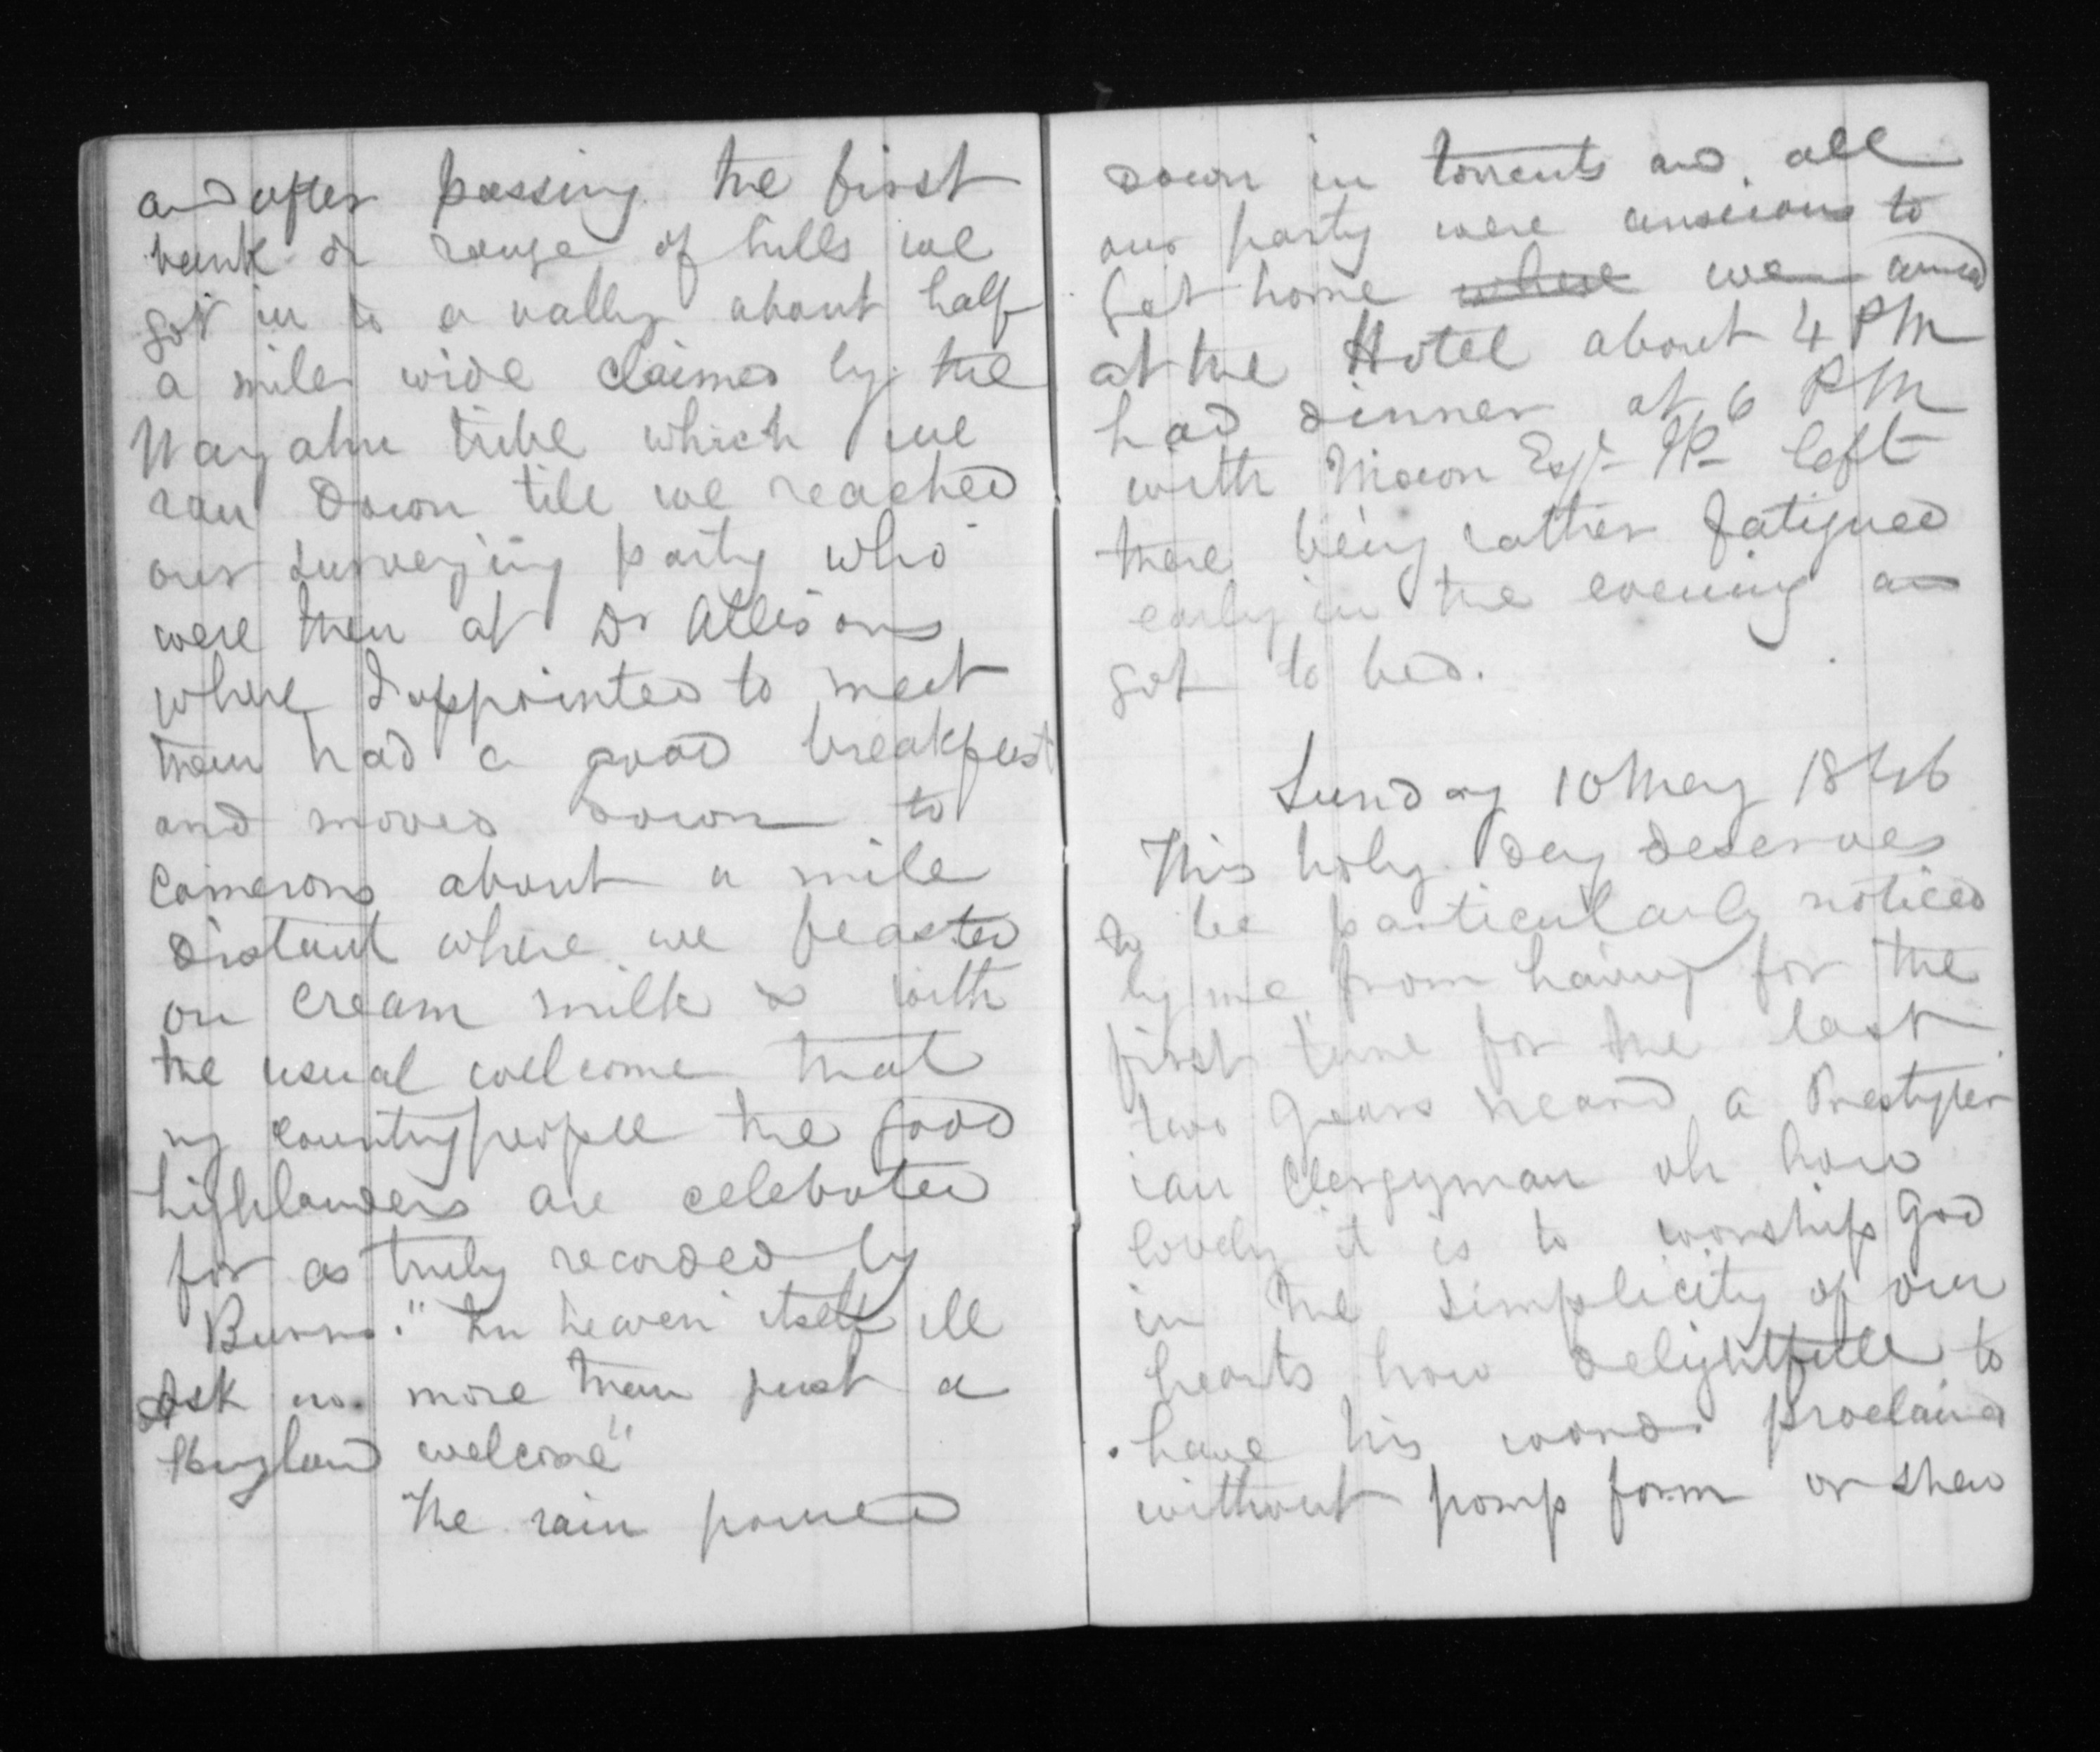 and after passing the first
bank or range of hills we
got in to a vally about half
a mile wide claimed by the
tribe which we
ran down till we reached
our surveying party who
were then at Dr Allisons
where I appointed to meet
them had a good breakfast
and moved down to
Camerons about a mile
distant where we feasted
on cream milk & with
the usual welcome that
my countrypeople the good
highlanders are celebrated
for as truly recorded by
Burns. "In heaven itself ill
Ask no more than just a
Highland welcome"
The rain poured
down in torrents and all
our party were anxious to
get home where we arrived
at the Hotel about 4 PM
had dinner at 6 PM
with Esqr JP left
there being rather fatigued
early in the evening an
got to bed.
Sunday 10 May 1846
This holy day deserves
to be particularly noticed
by me from having for the
first time for the last
two years heard a Presbyter
ian Clergyman oh how
lovely it is to worship God
in the simplicity of our
hearts how delightfull to
have his word proclaimed
without pomp form or shew